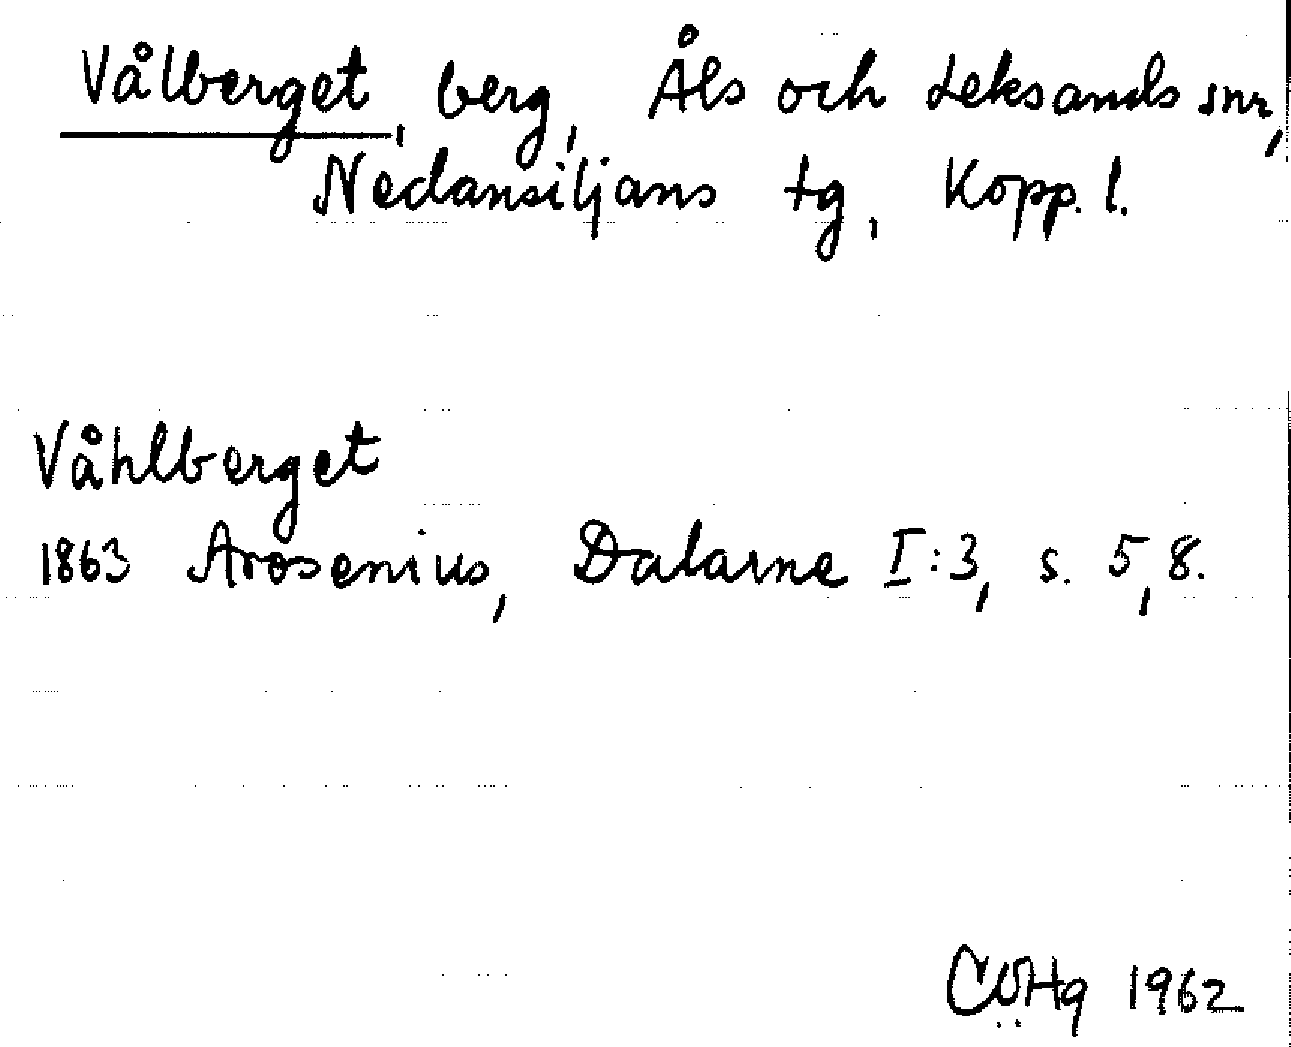 Vålberget, berg, Åls och Leksands snr,
Nedansiljans tg, Kopp. l.
Våhlberget
1863 Arosenius, Dalarne I:3, s. 5, 8.
1962